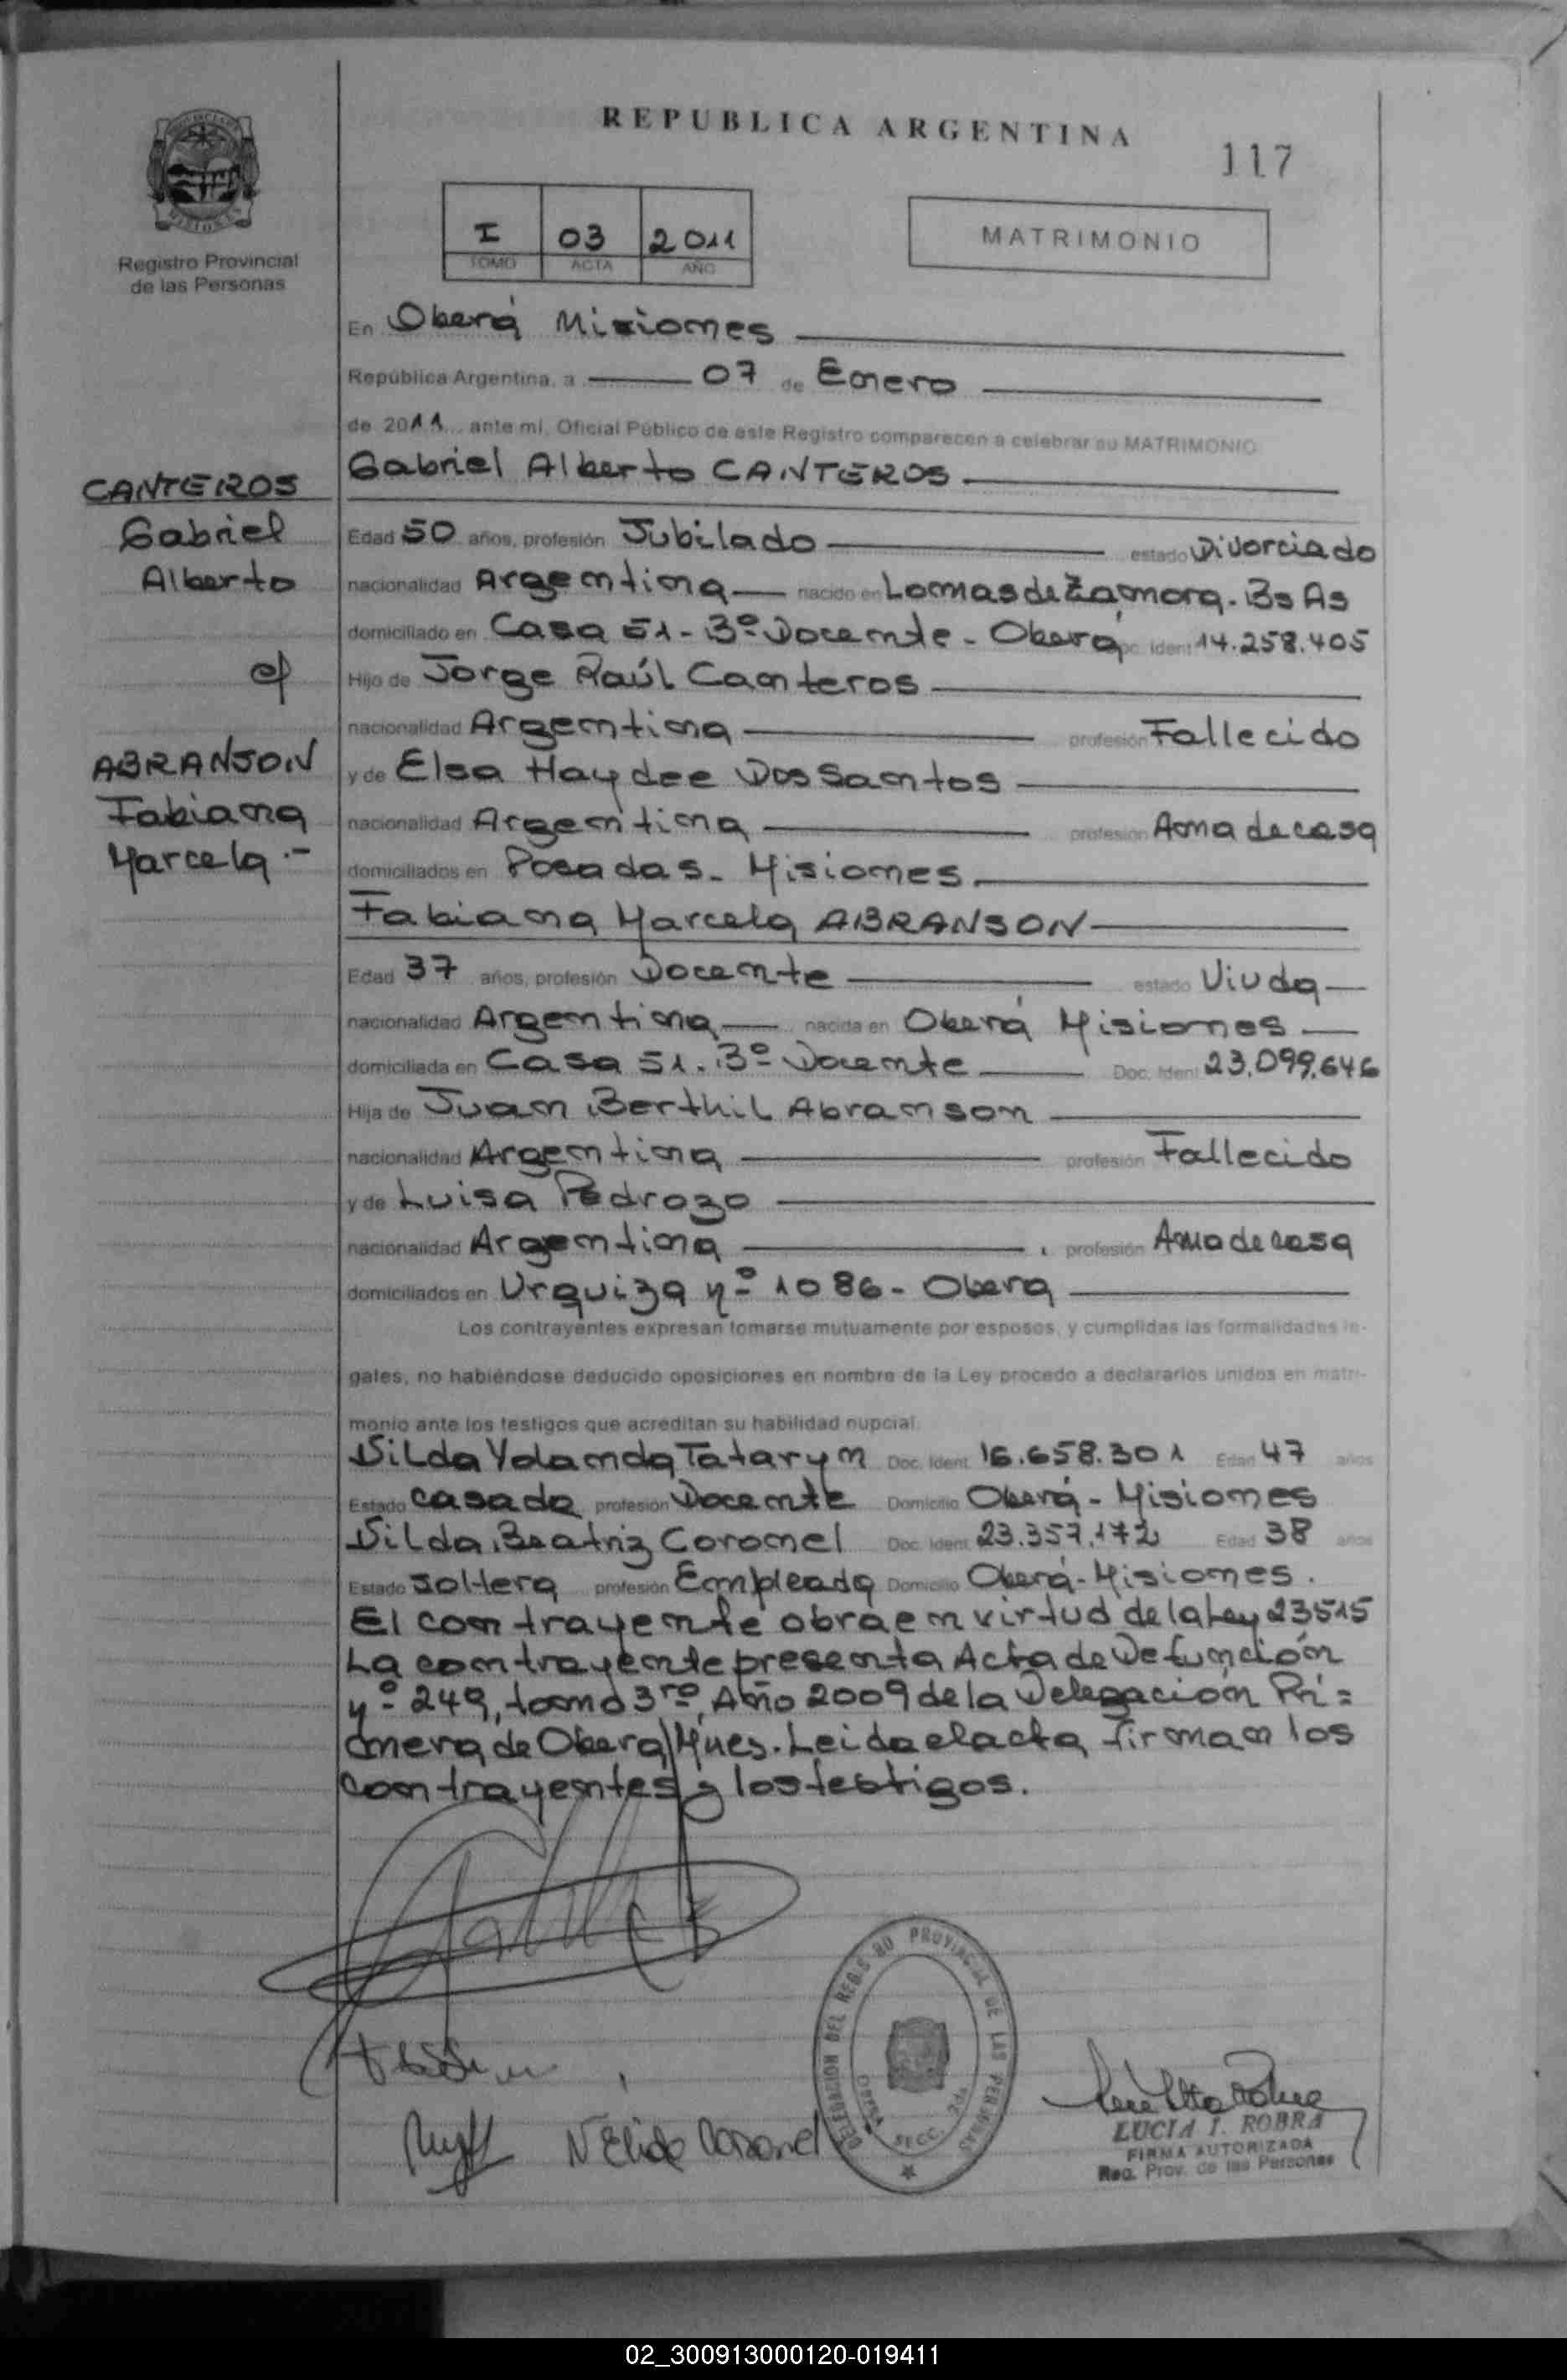 REPUBLICA ARGENTINA
117
I 03 2011
TOMO ACTA AÑO
MATRIMONIO
Registro Provincial
de las Personas
En Oberá Misiones
República Argentina, a 07 de Enero
de 2011 ante mi, Oficial Público de este Registro comparecen a celebrar su MATRIMONIO
Gabriel Alberto CANTEROS
CANTEROS
Gabriel
Alberto
c/
ABRANSON
Fabiana
Marcela.-
Edad 50 años, profesión Jubilado estado Divorciado
nacionalidad Argentina nacido en Lomas de Zamora. Bs As
domiciliado en Casa 51 - Bº Docente - Oberá Doc. Ident 14.258.405
Hijo de Jorge Raúl Canteros
nacionalidad Argentina profesión Fallecido
y de Elsa Haydee Dos Santos
nacionalidad Argentina profesión Ama de casa
domiciliados en Posadas - Misiones
Fabiana Marcela ABRANSON
Edad 37 años, profesión Docente estado Viuda
nacionalidad Argentina nacida en Oberá Misiones
domiciliada en Casa 51. Bº Docente Doc. Ident 23.099.646
Hija de Juan Berthil Abranson
nacionalidad Argentina profesión Fallecido
y de Luisa Pedrozo
nacionalidad Argentina profesión Ama de casa
domiciliados en Urquiza nº 1086 - Obera
Los contrayentes expresan tomarse mutuamente por esposos, y cumplidas las formalidades le-
gales, no habiéndose deducido oposiciones en nombre de la Ley procedo a declararlos unidos en matri-
monio ante los testigos que acreditan su habilidad nupcial.
Nilda Yolanda Tataryn Doc. Ident. 16.658.301 Edad 47 años
Estado casada profesión Docente Domicilio Oberá - Misiones
Nilda Beatriz Coronel Doc. Ident. 23.357.172 Edad 38 años
Estado soltera profesión Empleada Domicilio Oberá - Misiones.
El contrayente obra en virtud de la Ley 23515
La contrayente presenta Acta de Defunción
nº 249, tomo 3ro, Año 2009 de la Delegación Pri=
mera de Obera/Mnes. Leida el acta, firman los
contrayentes y los testigos.
Nélida Coronel
DELEGACION DEL REGISTRO PROVINCIAL DE LAS PERSONAS
OBERA SECC. 2da
LUCIA I. ROBRA
FIRMA AUTORIZADA
Reg. Prov. de las Personas
02_300913000120-019411